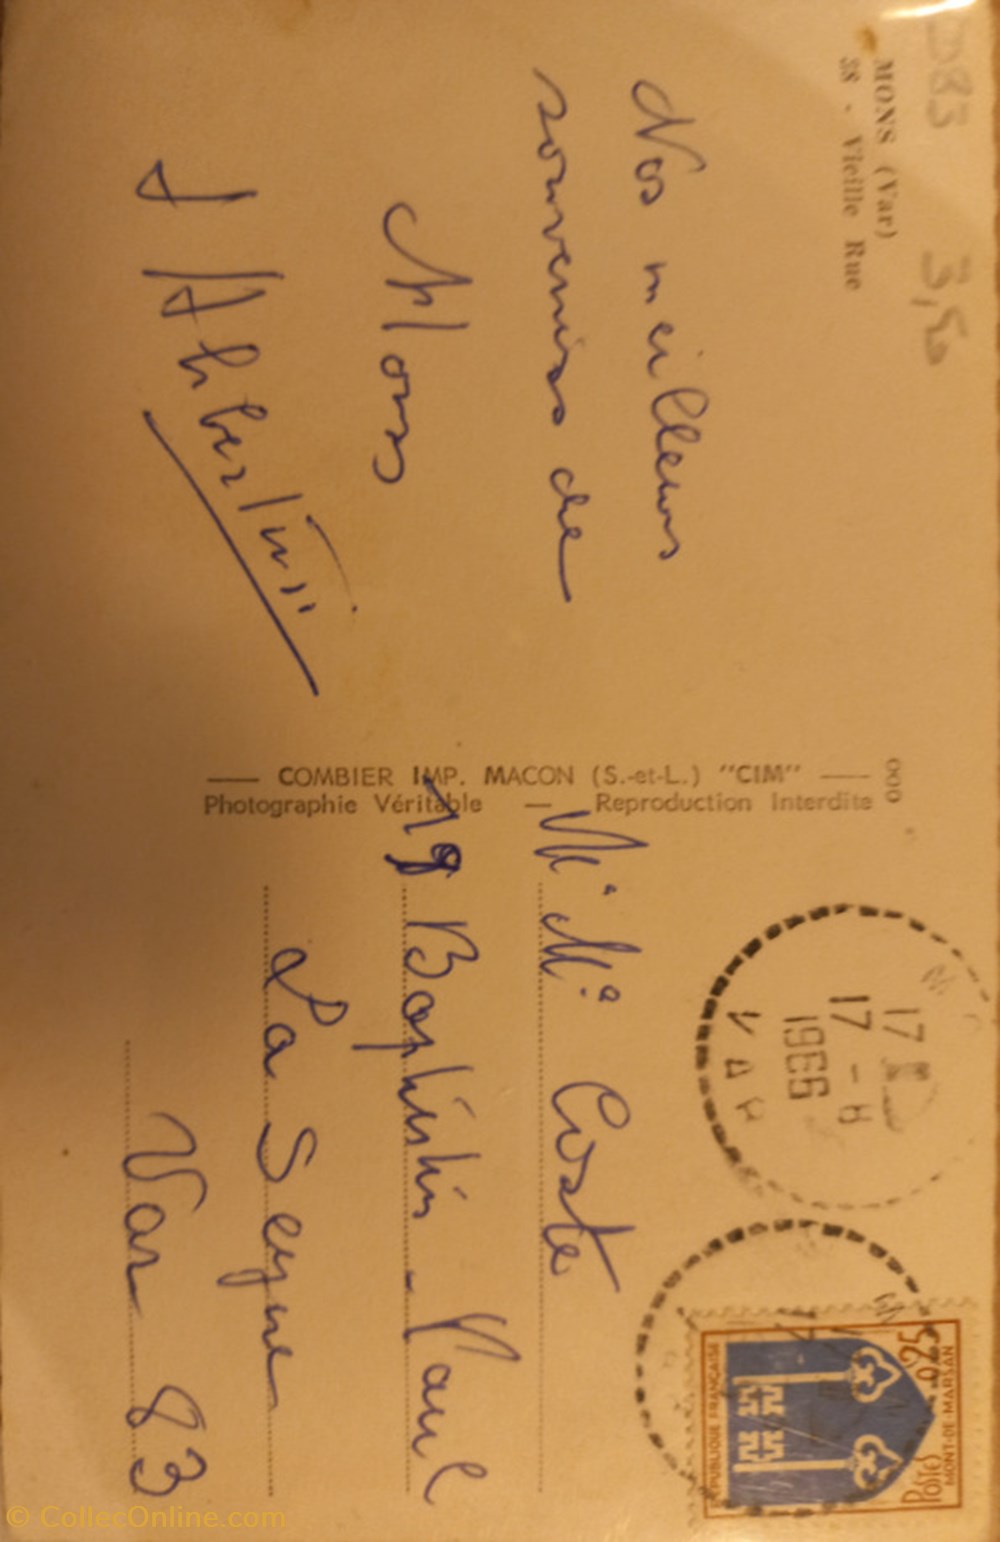 D83 3,50
MONS (Var)
38 - Vieille Rue
Nos meilleurs
souvenirs de
Mons
J Albertini
COMBIER IMP. MACON (S.-et-L.) "CIM"
Photographie Véritable — Reproduction Interdite
000
Mr Me Coste
18 Baptistin - Paul
La Seyne
Var 83
17
17 - 8
1966
VAR
RÉPUBLIQUE FRANÇAISE
0,25
POSTES
MONT-DE-MARSAN
© CollecOnline.com